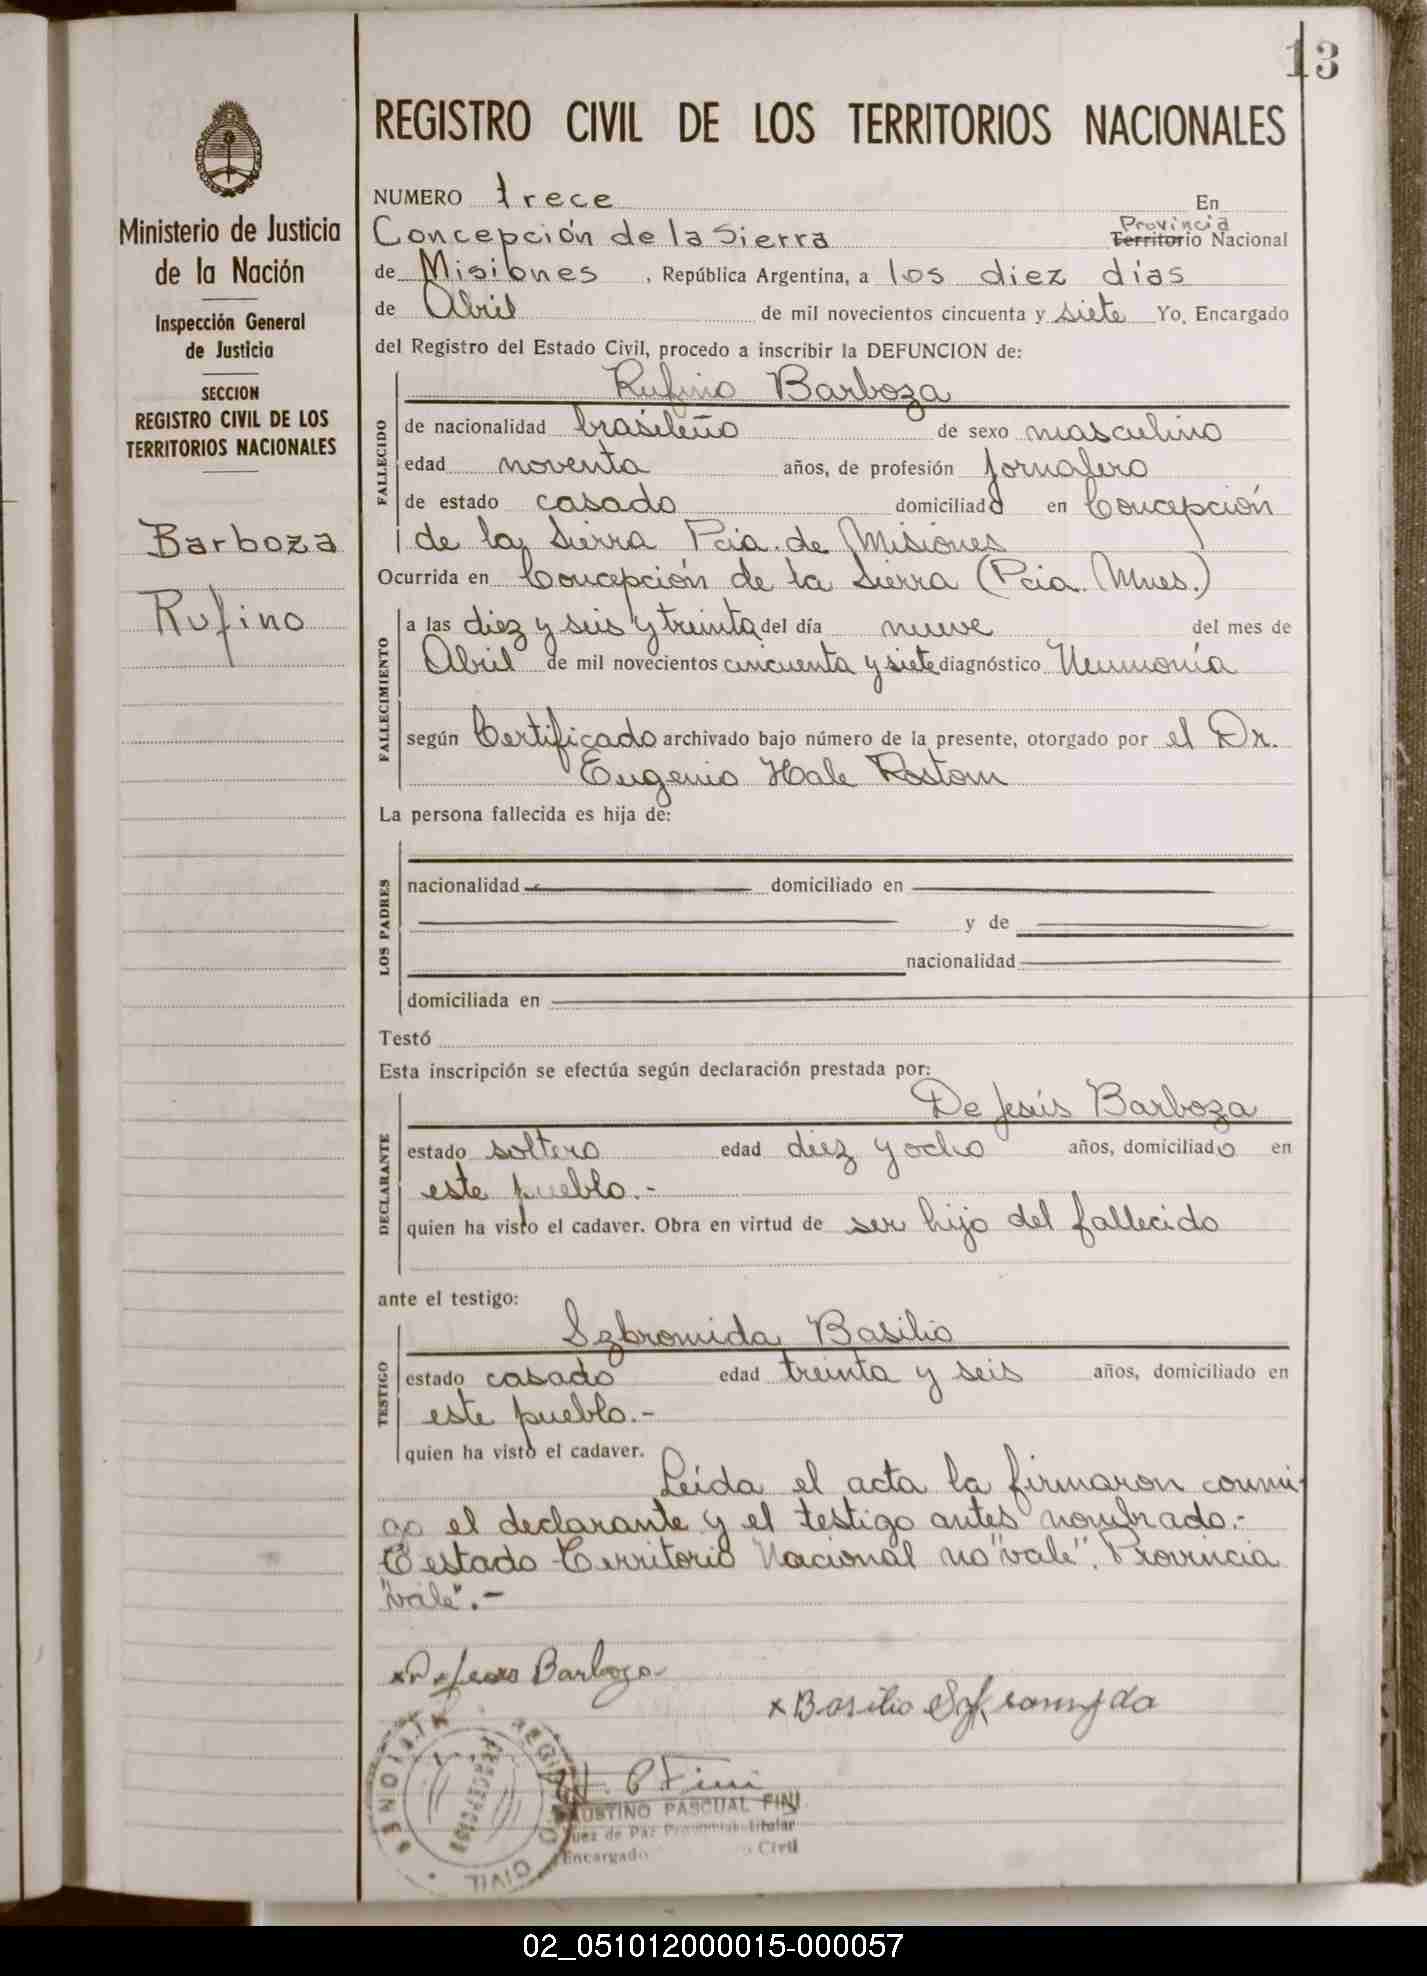 13
REGISTRO CIVIL DE LOS TERRITORIOS NACIONALES
Ministerio de Justicia
de la Nación
Inspección General
de Justicia
SECCION
REGISTRO CIVIL DE LOS
TERRITORIOS NACIONALES
Barboza
Rufino
NUMERO trece En
Provincia
Concepción de la Sierra Territorio Nacional
de Misiones, República Argentina, a los diez días
de Abril de mil novecientos cincuenta y siete Yo, Encargado
del Registro del Estado Civil, procedo a inscribir la DEFUNCION de:
FALLECIDO
Rufino Barboza
de nacionalidad brasileño de sexo masculino
edad noventa años, de profesión jornalero
de estado casado domiciliado en Concepción
de la Sierra Pcia. de Misiones
Ocurrida en Concepción de la Sierra (Pcia. Mnes.)
FALLECIMIENTO
a las diez y seis y treinta del día nueve del mes de
Abril de mil novecientos cincuenta y siete diagnóstico Neumonía
según Certificado archivado bajo número de la presente, otorgado por el Dr.
Eugenio Hale Rostom
La persona fallecida es hija de:
LOS PADRES
nacionalidad domiciliado en
y de
nacionalidad
domiciliada en
Testó
Esta inscripción se efectúa según declaración prestada por:
DECLARANTE
De Jesús Barboza
estado soltero edad diez y ocho años, domiciliado en
este pueblo.-
quien ha visto el cadaver. Obra en virtud de ser hijo del fallecido
ante el testigo:
TESTIGO
Szbromida Basilio
estado casado edad treinta y seis años, domiciliado en
este pueblo.-
quien ha visto el cadaver.
Leída el acta la firmaron conmi-
go el declarante y el testigo antes nombrado.-
Testado Territorio Nacional no "vale". Provincia
"vale".-
x De Jesus Barboza
x Basilio
REGISTRO CIVIL
FAUSTINO PASCUAL FINI
Juez de Paz Provincial Titular
Encargado Civil
02_051012000015-000057